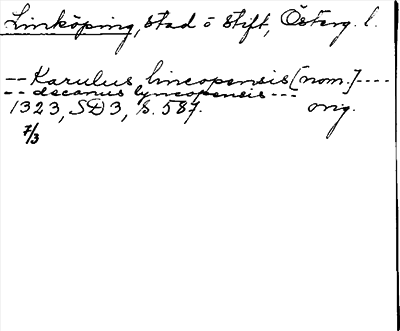 Linköping, stad o stift, Österg. l.
-- Karulus lincopensis [nom.] ----
-- decanus lyncopensis ---
1323, SD3, s. 587. orig.
7/3